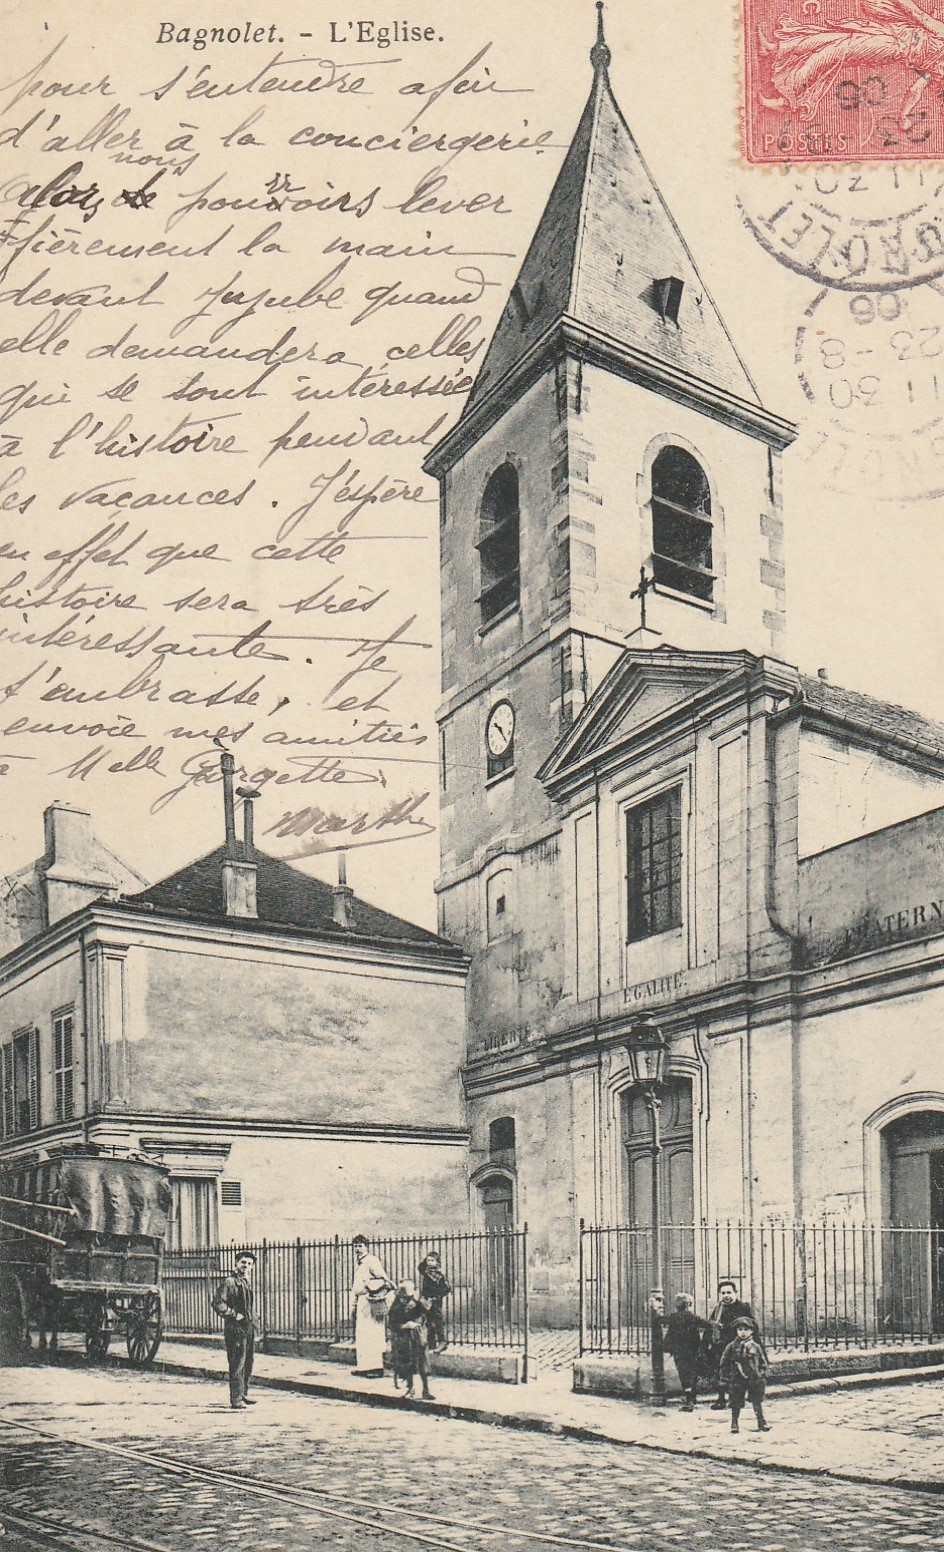 Bagnolet. - L'Eglise.
pour s'entendre afin
d'aller à la conciergerie
nous
alors pouvoirs lever
fièrement la main
devant Jujube quand
elle demandera celles
qui se sont intéressées
à l'histoire pendant
les vacances. J'éspère
en effet que cette
histoire sera très
intéressante. Je
t'embrasse, et
envoie mes amitiés
à Melle Georgette.
Marthe
POSTES
06
23
11 30
23 - 8
06
LIBERTÉ
EGALITÉ.
FRATERN